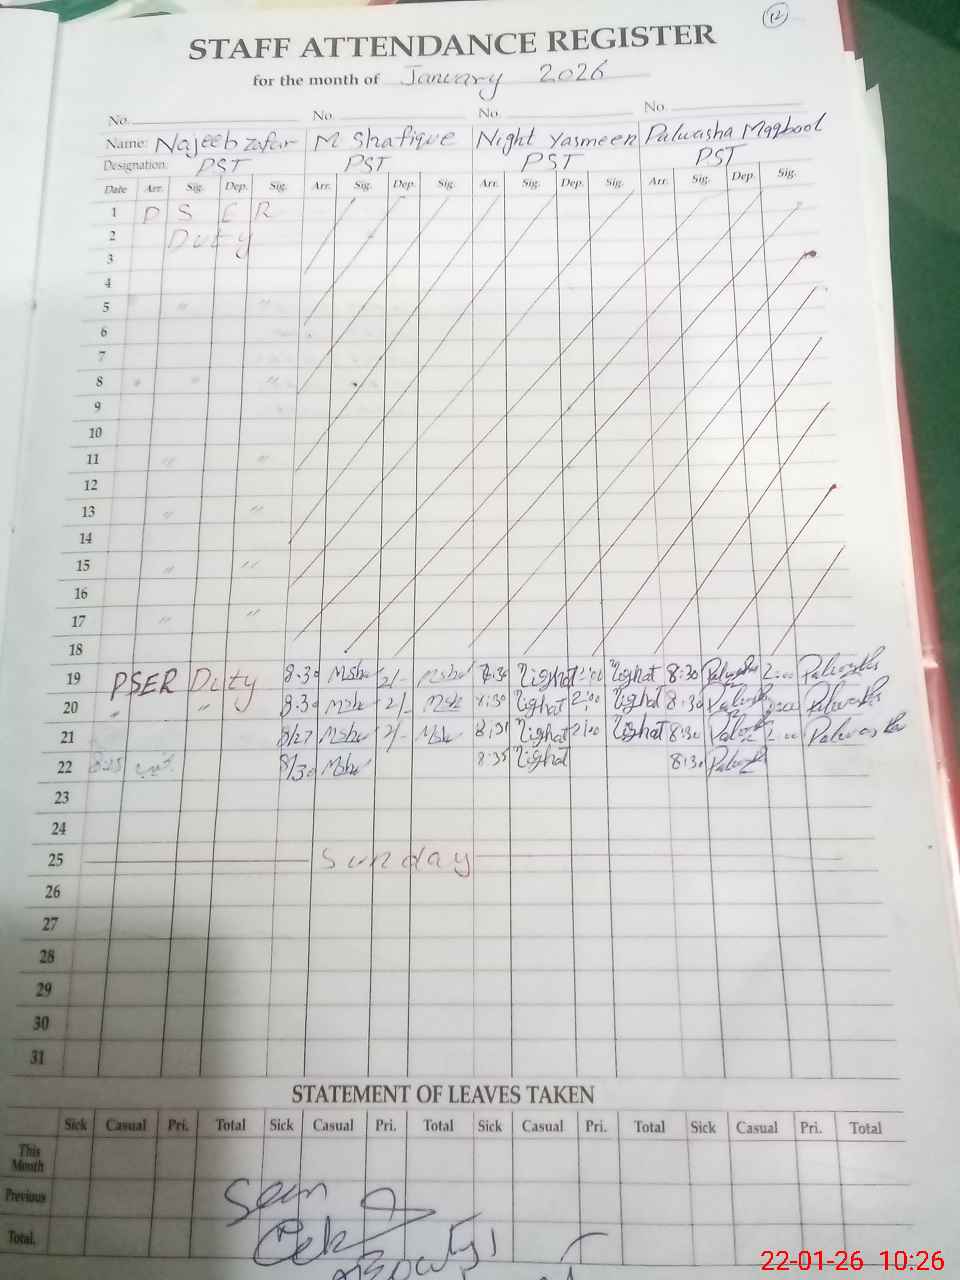 12
STAFF ATTENDANCE REGISTER
for the month of January 2026
No. No. No. No.
Name: Najeeb zafar M Shafique Night Yasmeen Palwasha Maqbool
Designation: PST PST PST PST
Date Arr. Sig. Dep. Sig. Arr. Sig. Dep. Sig. Arr. Sig. Dep. Sig. Arr. Sig. Dep. Sig.
1 P S E R
2 Duty
3
4
5 " "
6
7
8 " "
9
10
11 " "
12
13 " "
14
15 " "
16
17 " "
18
19 PSER Duty 8:30 2/- 8:30 Nighat 2:00 Nighat 8:30 Palwasha 2:00 Palwasha
20 " " 8:30 2/- 8:30 Nighat 2:00 Nighat 8:30 Palwasha 2:00 Palwasha
21 8/27 2/- 8:31 Nighat 2:00 Nighat 8:30 Palwasha 2:00 Palwasha
22 8:45 8/30 8:35 Nighat 8:30 Palwasha
23
24
25 Sunday
26
27
28
29
30
31
STATEMENT OF LEAVES TAKEN
Sick Casual Pri. Total Sick Casual Pri. Total Sick Casual Pri. Total Sick Casual Pri. Total
This Month
Previous
Total.
Seen
22-01-26 10:26